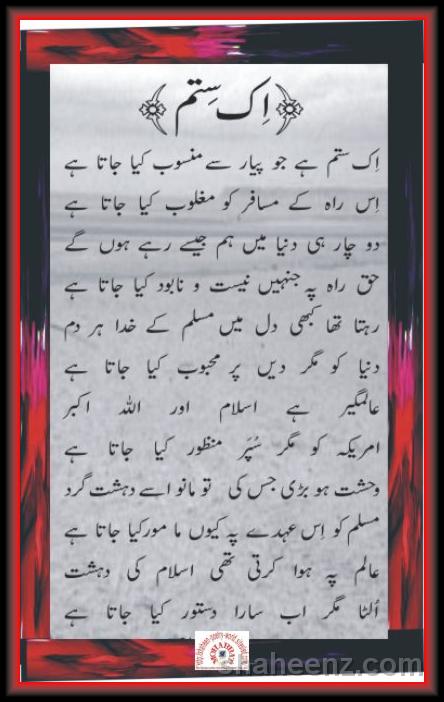 اِک سِتم
اِک ستم ہے جو پیار سے منسوب کیا جاتا ہے
اِس راہ کے مسافر کو مغلوب کیا جاتا ہے
دو چار ہی دنیا میں ہم جیسے رہے ہوں گے
حق راہ پہ جنہیں نیست و نابود کیا جاتا ہے
رہتا تھا کبھی دل میں مسلم کے خدا ہر دم
دنیا کو مگر دیں پر محبوب کیا جاتا ہے
عالمگیر ہے اسلام اور اللہ اکبر
امریکہ کو مگر سُپَر منظور کیا جاتا ہے
وحشت ہو بڑی جس کی تو مانو اسے دہشت گرد
مسلم کو اِس عہدے پہ کیوں ما مور کیا جاتا ہے
عالم پہ ہوا کرتی تھی اسلام کی دہشت
اُلٹا مگر اب سارا دستور کیا جاتا ہے
shaheenz.com